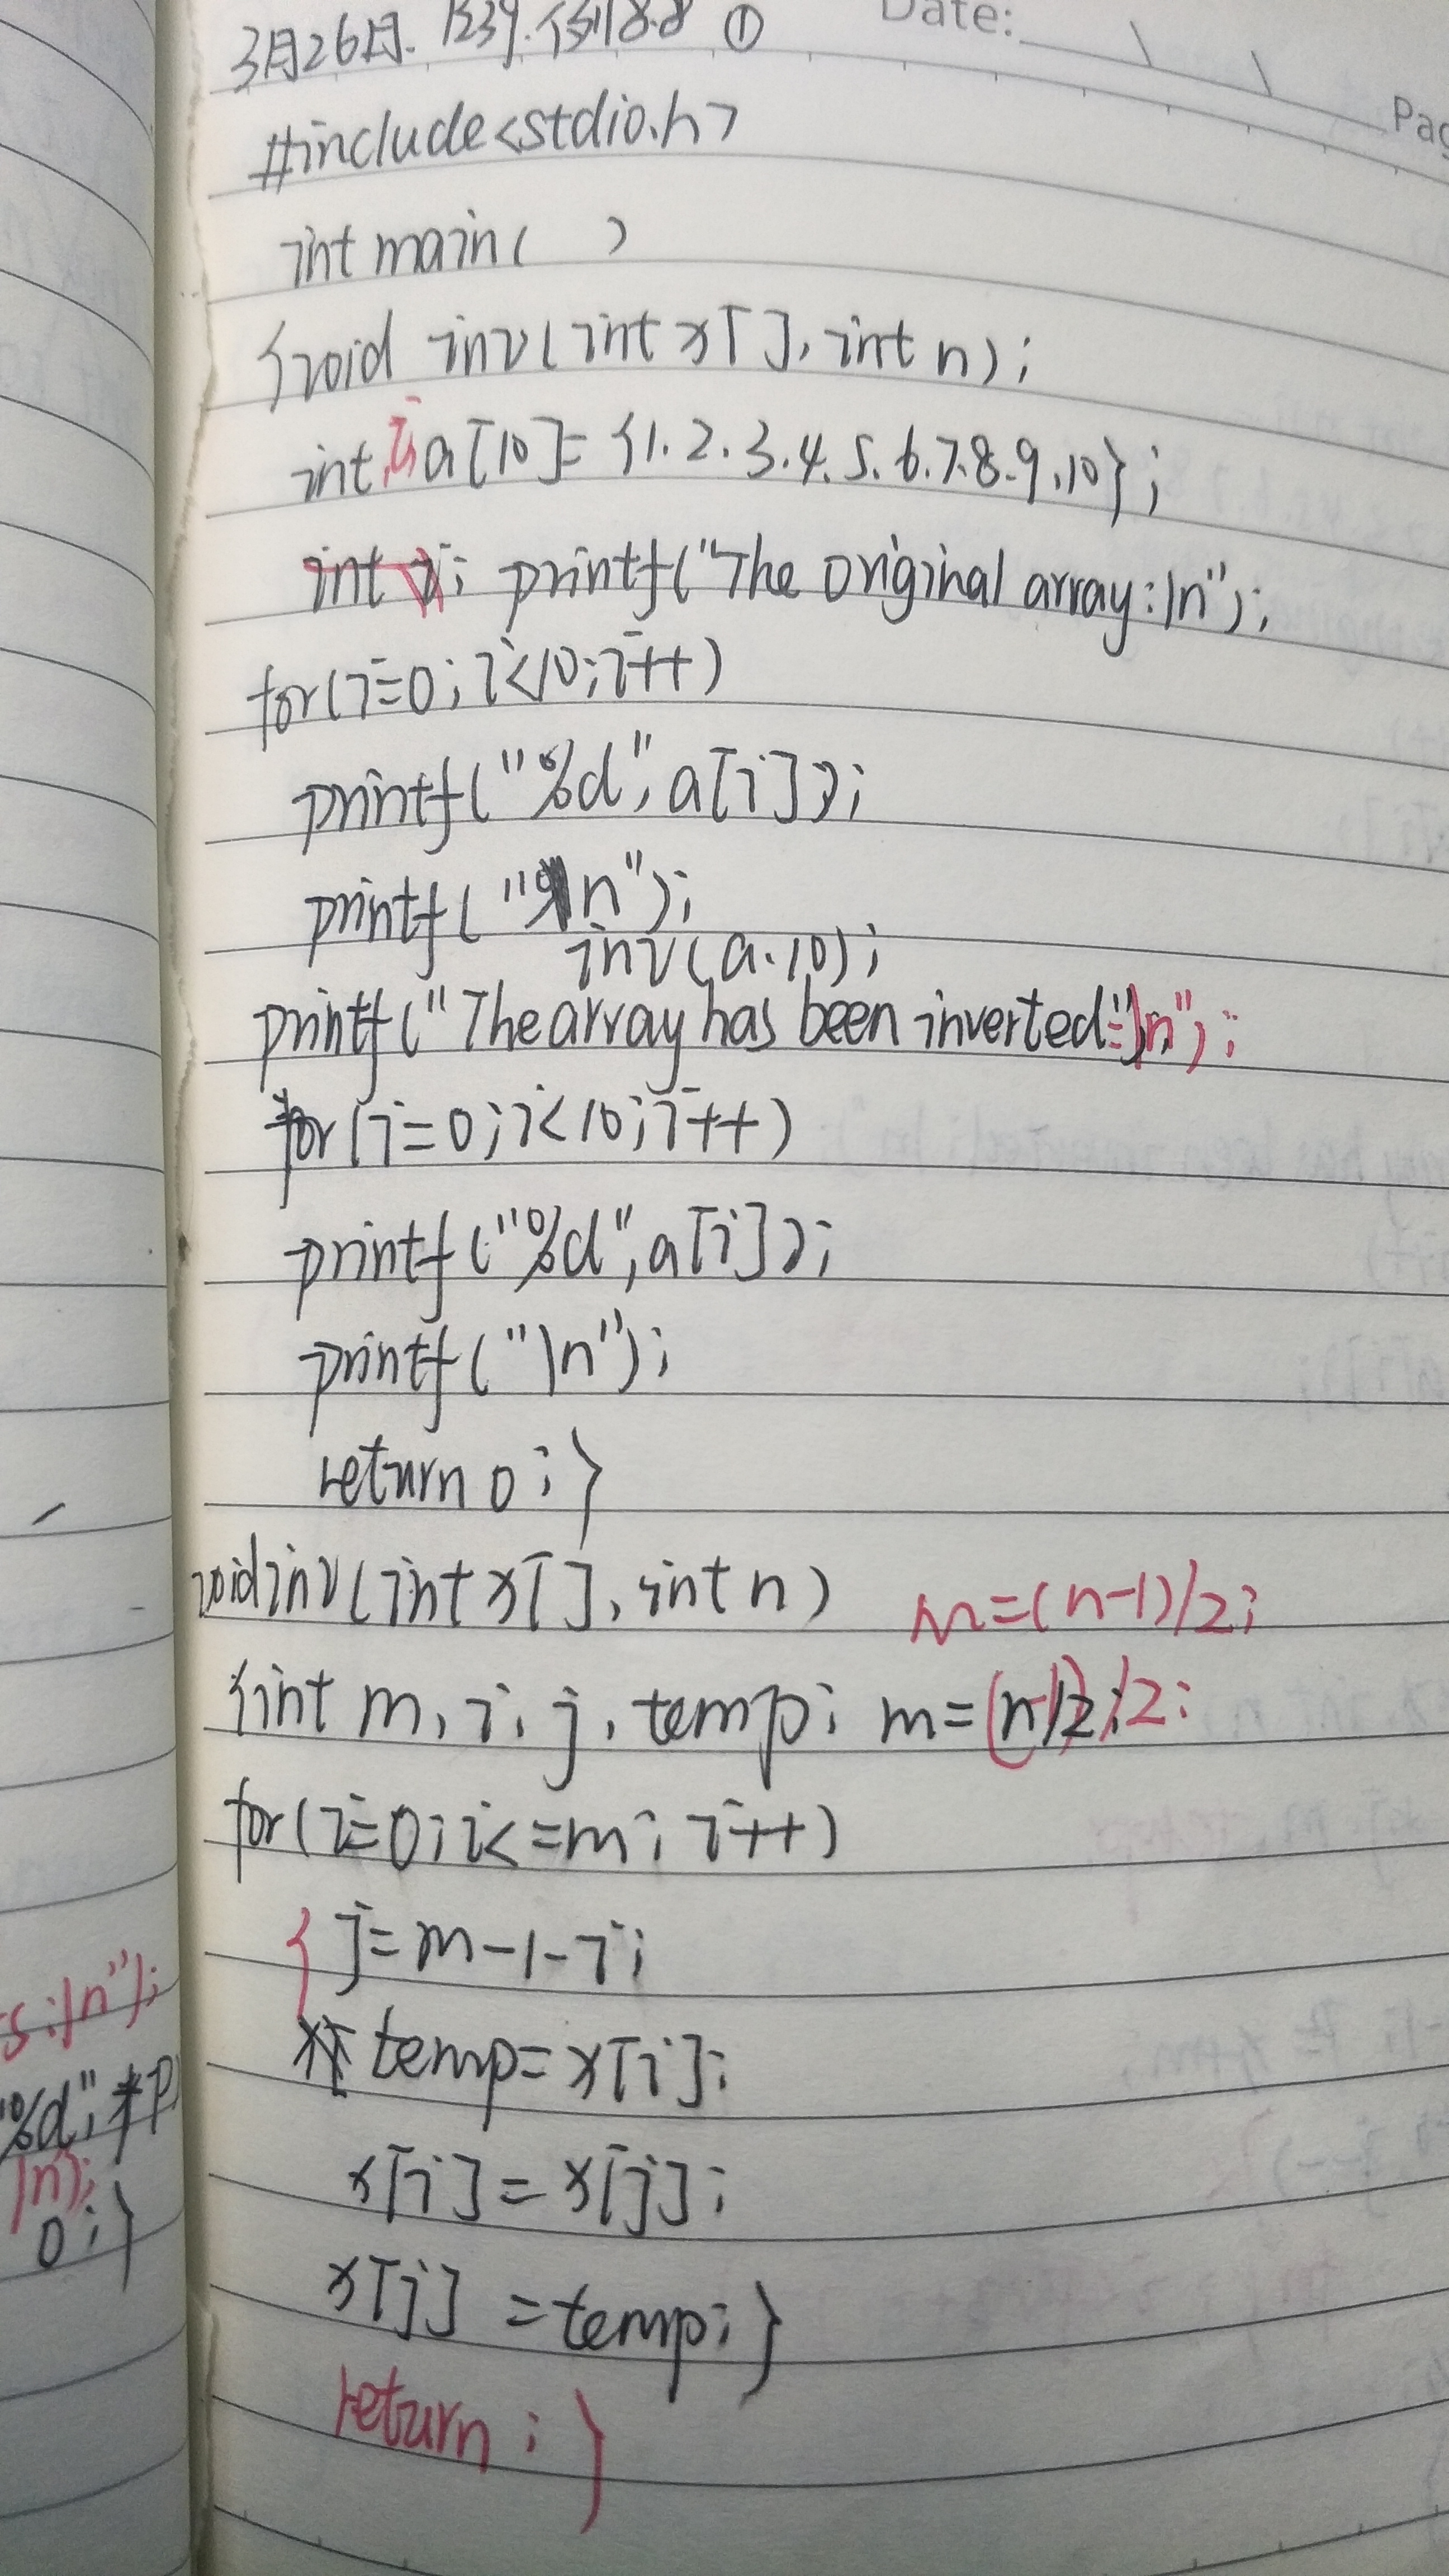 Date:
Pag
3月26日. P239.例8.8 ①
#include<stdio.h>
int main( )
{void inv(int x[], int n);
int i, a[10]={1.2.3.4.5.6.7.8.9.10};
int i; printf("The original array:\n");
for(i=0;i<10;i++)
printf("%d",a[i]);
printf("\n");
inv(a.10);
printf("The array has been inverted:\n");
for(i=0;i<10;i++)
printf("%d",a[i]);
printf("\n");
return 0;}
void inv(int x[], int n) m=(n-1)/2;
{int m,i,j,temp; m=(n-1)/2;
for(i=0;i<=m;i++)
{j=m-1-i;
temp=x[i];
x[i]=x[j];
x[j]=temp;}
return;}
s:\n");
"%d",*p
\n");
0;}